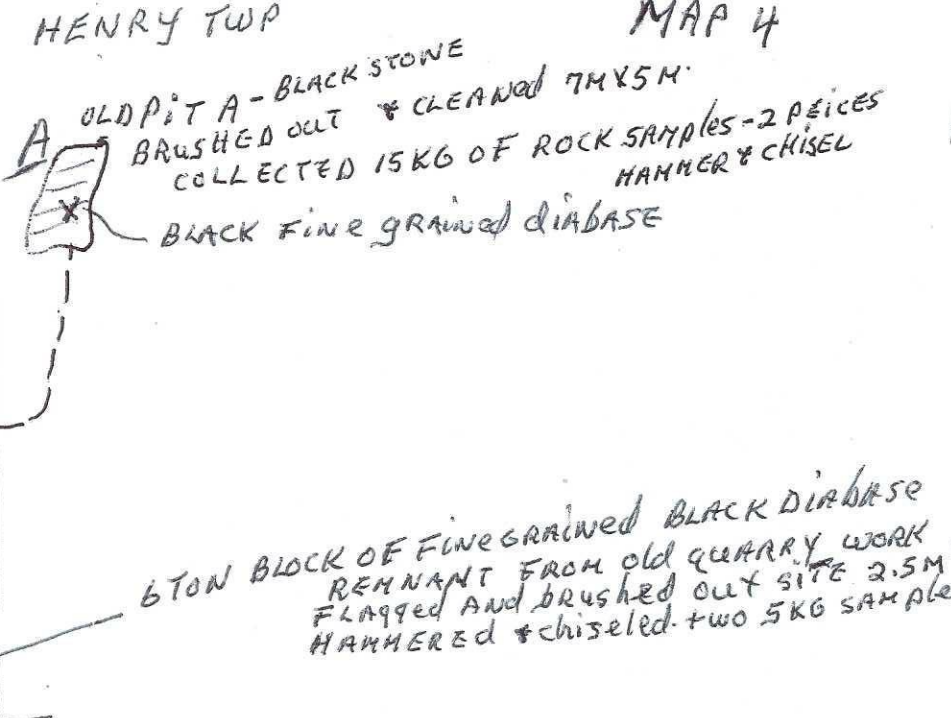 HENRY TWP
MAP 4
A
OLD PiT A - BLACK STONE
BRUSHED OUT & CLEANed 7M X 5M.
COLLECTED 15KG OF ROCK SAMPles - 2 PEiCES
HAMMER & CHISEL
X
BLACK FiNe gRAiNed diABASE
6 TON BLOCK OF FiNe GRAiNed BLACK DiAbASe
REMNANT FROM old QUARRY WORK
FLAgged ANd bRushed OUT SiTE 2.5M
HAMMERED & chiseled. two 5KG SAMPle